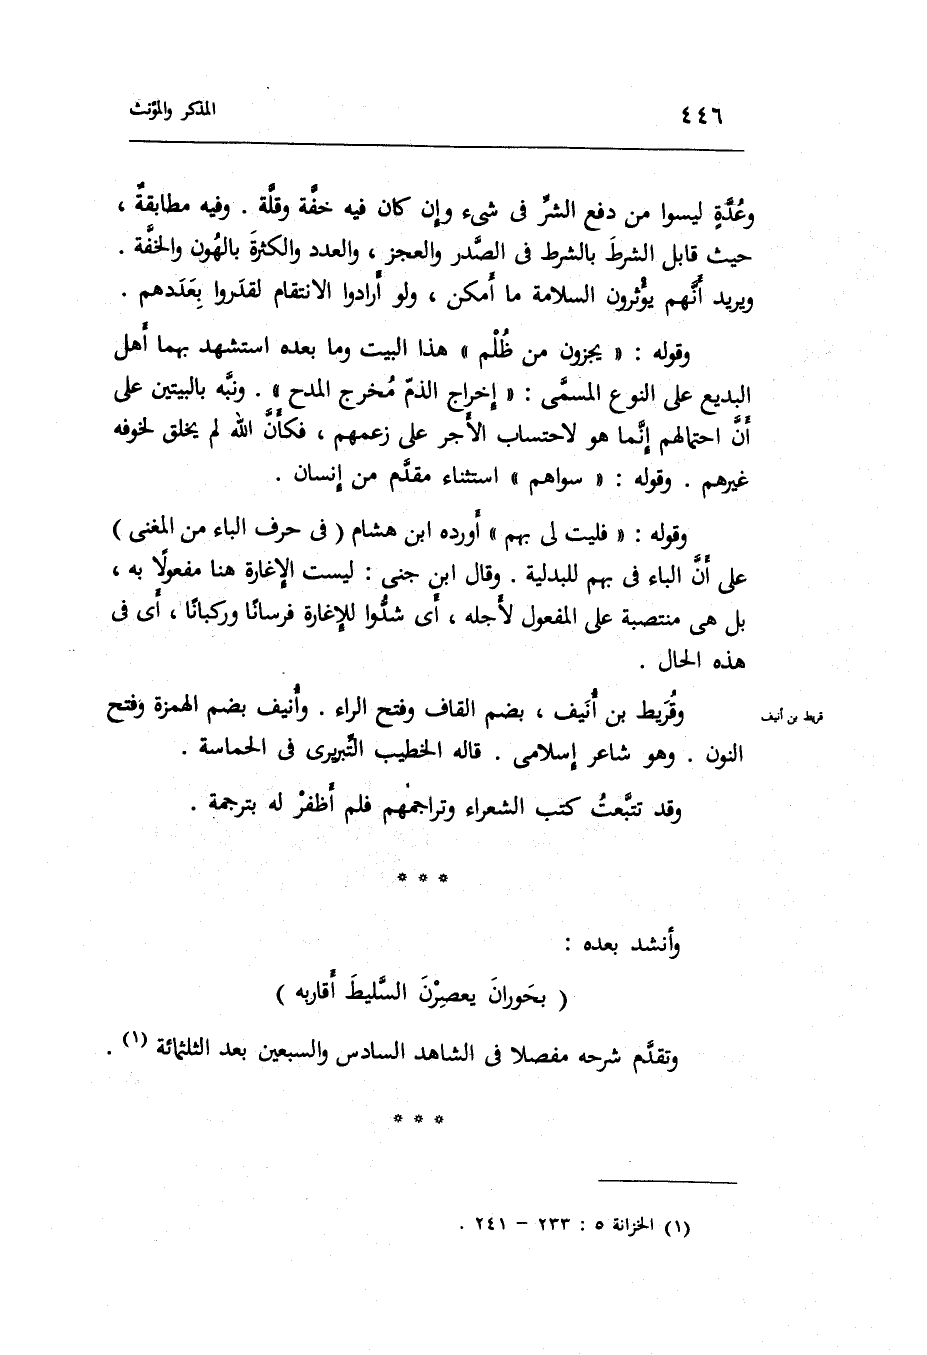 ٤٤٦
المذكر والمؤنث
وعُدَّةٍ ليسوا من دفع الشرِّ فى شىء وإن كان فيه خفَّة وقلَّة . وفيه مطابقةٌ ،
حيث قابل الشرطَ بالشرط فى الصَّدر والعجز ، والعدد والكثرةَ بالهُون والخفَّة .
ويريد أنَّهم يؤْثرون السلامة ما أمكن ، ولو أرادوا الانتقام لقدَروا بِعَدَدهم .
وقوله : « يجزون من ظُلْم » هذا البيت وما بعده استشهد بهما أهل
البديع على النوع المسمَّى : « إخراج الذمّ مُخرج المدح » . ونبَّه بالبيتين على
أنَّ احتمالهم إنَّما هو لاحتساب الأجر على زعمهم ، فكأنَّ الله لم يخلق لخوفه
غيرهم . وقوله : « سواهم » استثناء مقدَّم من إنسان .
وقوله : « فليت لى بهم » أورده ابن هشام ( فى حرف الباء من المغنى )
على أنَّ الباء فى بهم للبدلية . وقال ابن جنى : ليست الإغارة هنا مفعولًا به ،
بل هى منتصبة على المفعول لأجله ، أى شدُّوا للإغارة فرسانًا وركبانًا ، أى فى
هذه الحال .
وقُريط بن أنَيف ، بضم القاف وفتح الراء . وأنيف بضم الهمزة وفتح
قريط بن أنيف
النون . وهو شاعر إسلامى . قاله الخطيب التِّبريزى فى الحماسة .
وقد تتبَّعتُ كتب الشعراء وتراجمهم فلم أظفرْ له بترجمة .
* * *
وأنشد بعده :
( بحَورانَ يعصِرْنَ السَّليطَ أقاربه )
وتقدَّم شرحه مفصلا فى الشاهد السادس والسبعين بعد الثلثمائة (١) .
* * *
(١) الخزانة ٥ : ٢٣٣ – ٢٤١ .